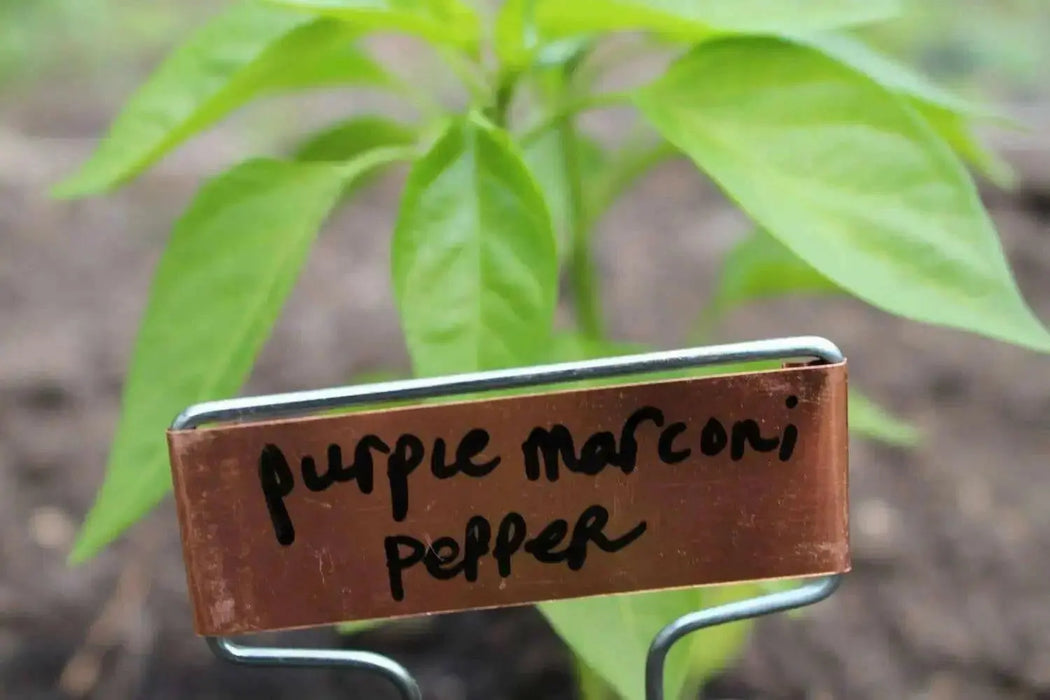 purple marconi
pepper